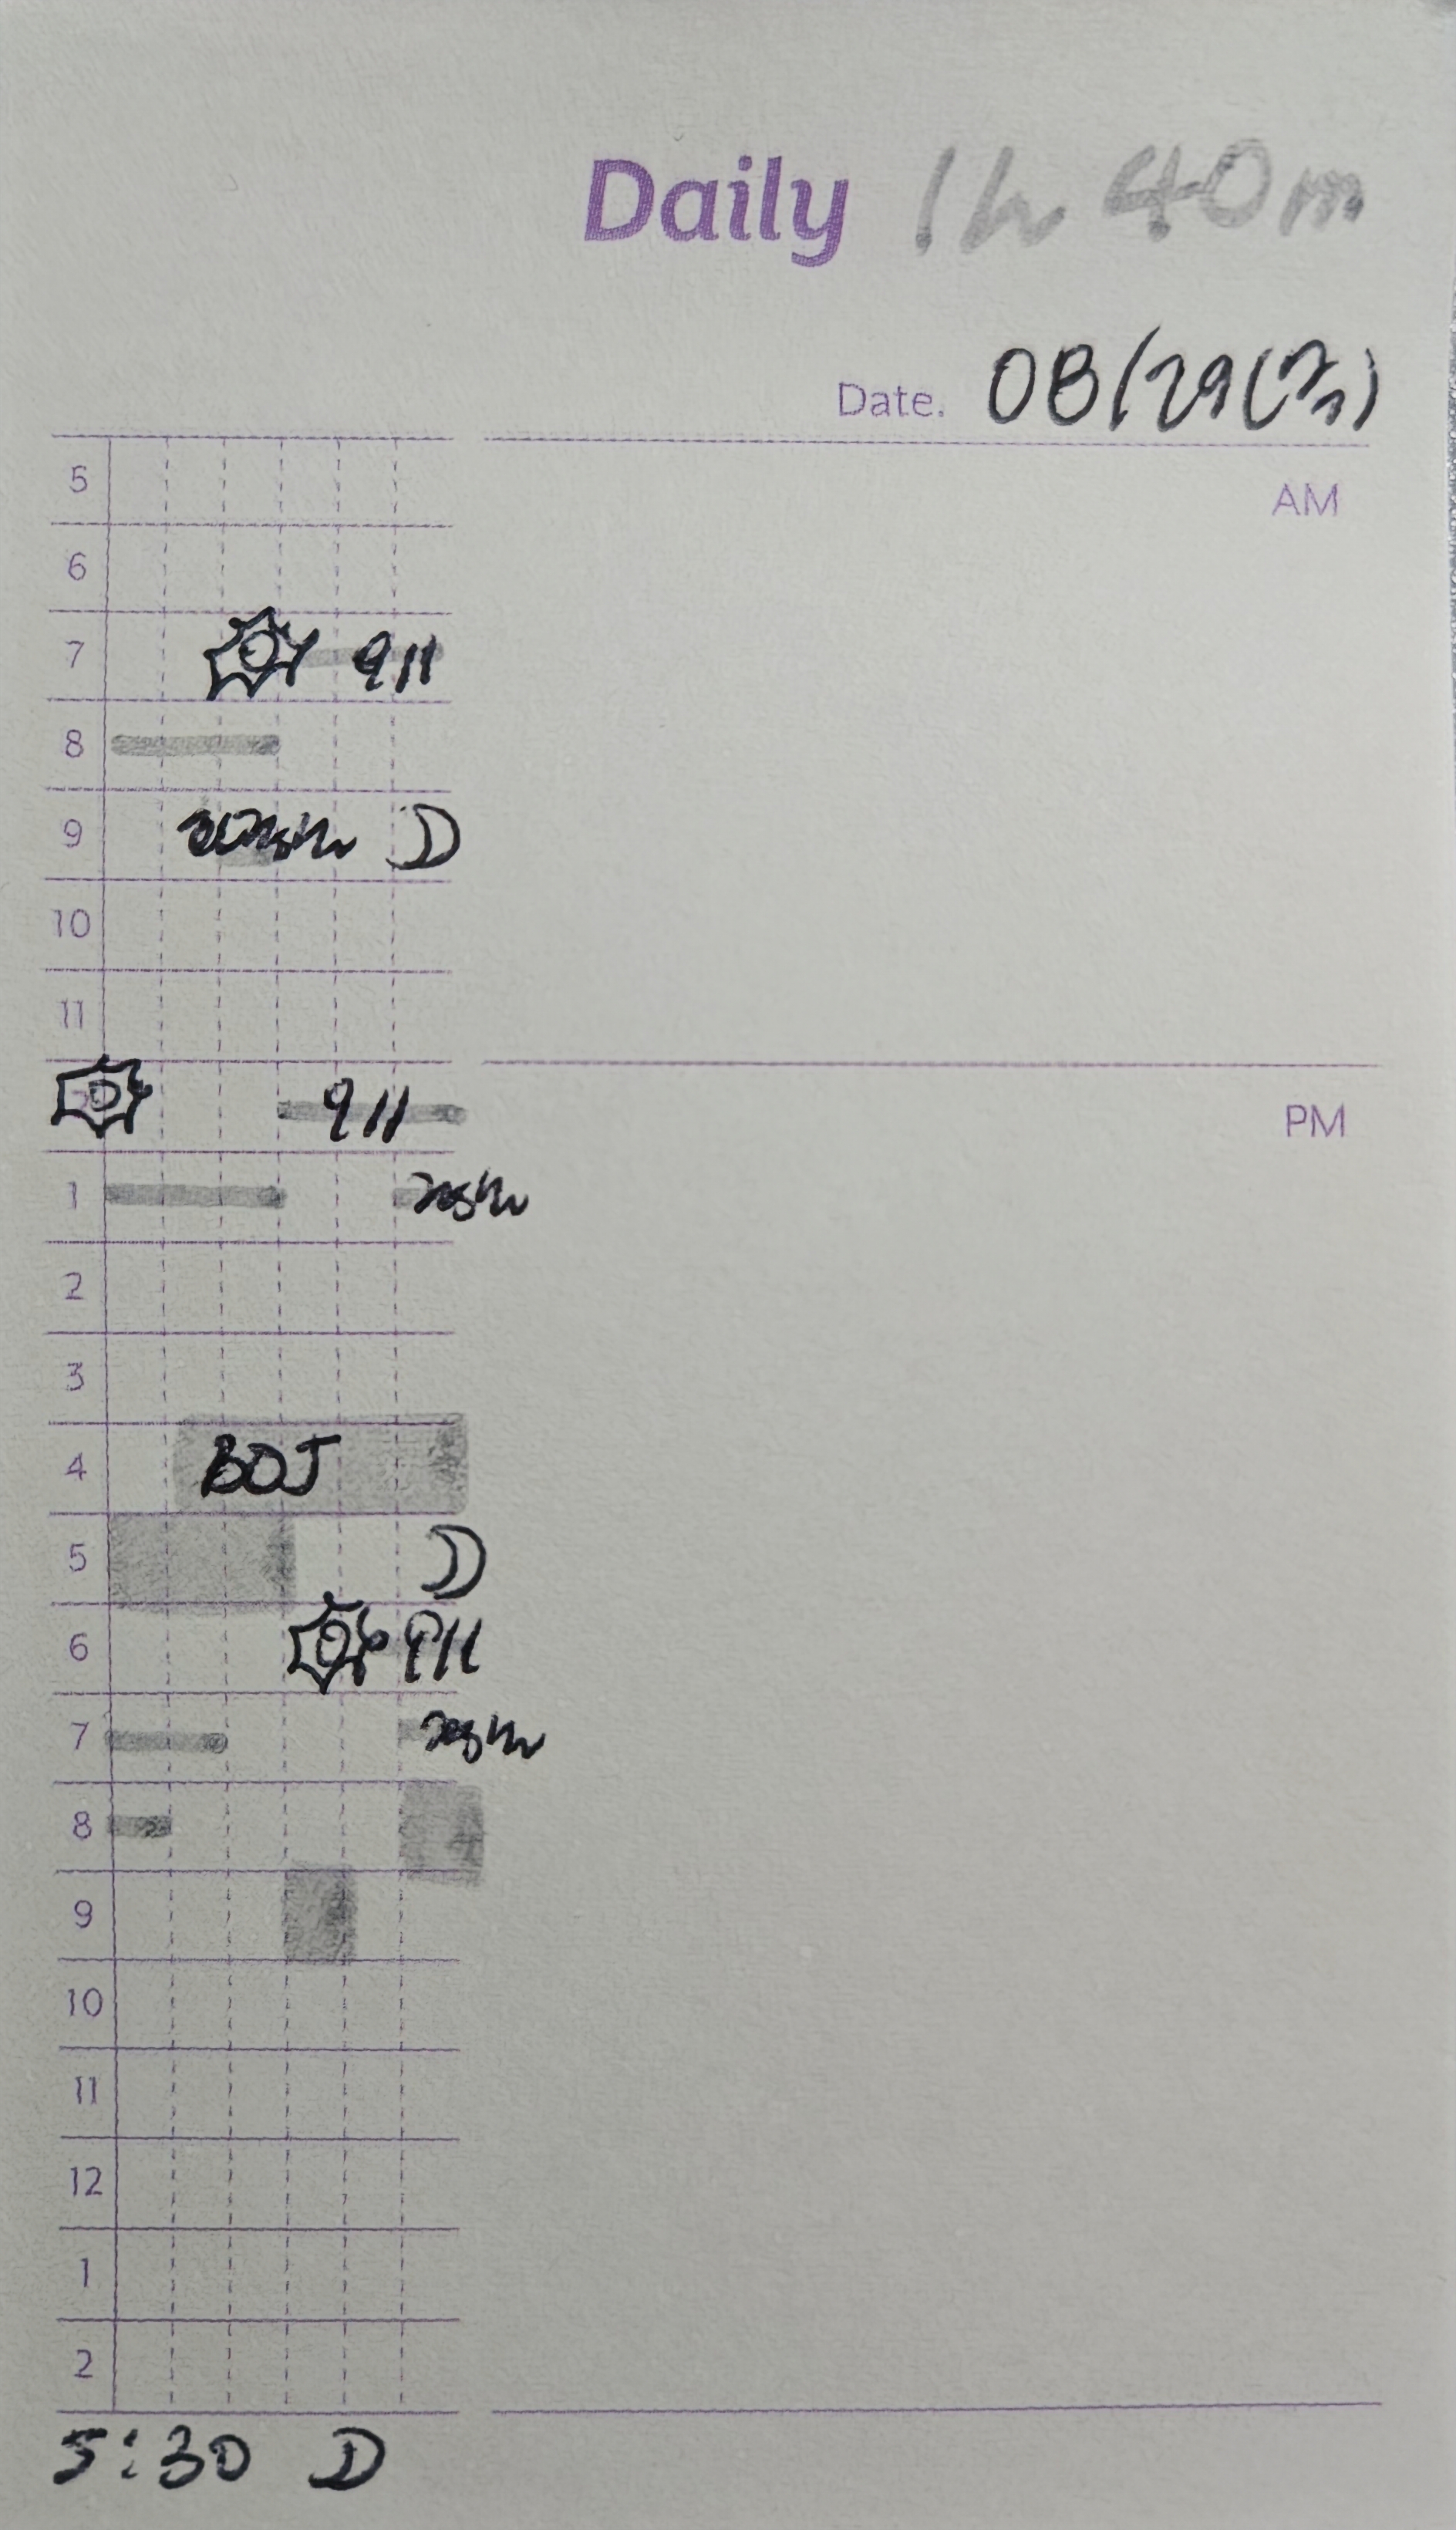 Daily 1h 40m
Date. 08/29
5
AM
6
7 911
8
9
10
11
911
PM
1
2
3
4 BOJ
5
6 911
7
8
9
10
11
12
1
2
5:30